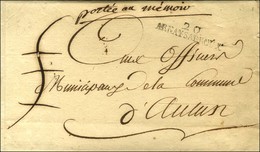 portée au mémoire
P. D.
Aux Officiers
Municipaux de la Commune
d'Autun